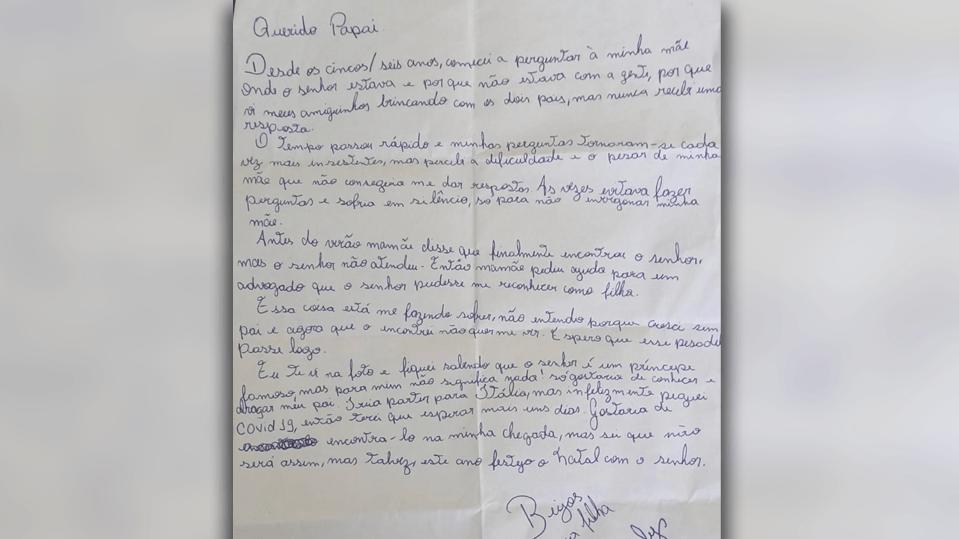 Querido Papai
Desde os cincos/seis anos, comecei a perguntar à minha mãe
onde o senhor estava e por que não estava com a gente, por que
vi meus amiguinhos brincando com os dois pais, mas nunca recebi uma
resposta.
O tempo passou rápido e minhas perguntas tornaram-se cada
vez mais insestentes, mas percebi a dificuldade e o pesar de minha
mãe que não conseguia me dar respostas. As vezes evitava fazer
perguntas e sofria em silêncio, só para não invergonar minha
mãe.
Antes do verão mamãe disse que finalmente encontrou o senhor,
mas o senhor não atendeu. Então mamãe pediu ajuda para um
advogado que o senhor pudesse me reconhecer como filha.
Essa coisa está me fazendo sofrer, não entendo porque cresci sem
pai e agora que o encontrei não quer me ver. Espero que esse pesadel
passe logo.
Eu te vi na foto e fiquei sabendo que o senhor é um príncipe
famoso, mas para mim não significa nada! só gostaria de conhecer e
abraçar meu pai. Iria partir para Itália, mas infelizmente peguei
COVID 19, então terei que esperar mais uns dias. Gostaria de
encontra-lo na minha chegada, mas sei que não
será assim, mas talvez, este ano festejo o Natal com o senhor.
Beijos
filha